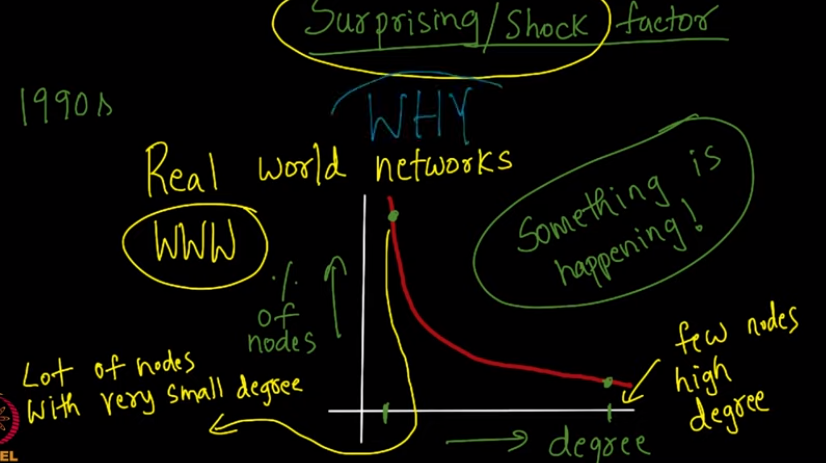 Surprising/Shock factor
1990s
WHY
Real world networks
WWW
Something is
happening!
%
of
nodes
few nodes
high
degree
Lot of nodes
With very small degree
degree
EL